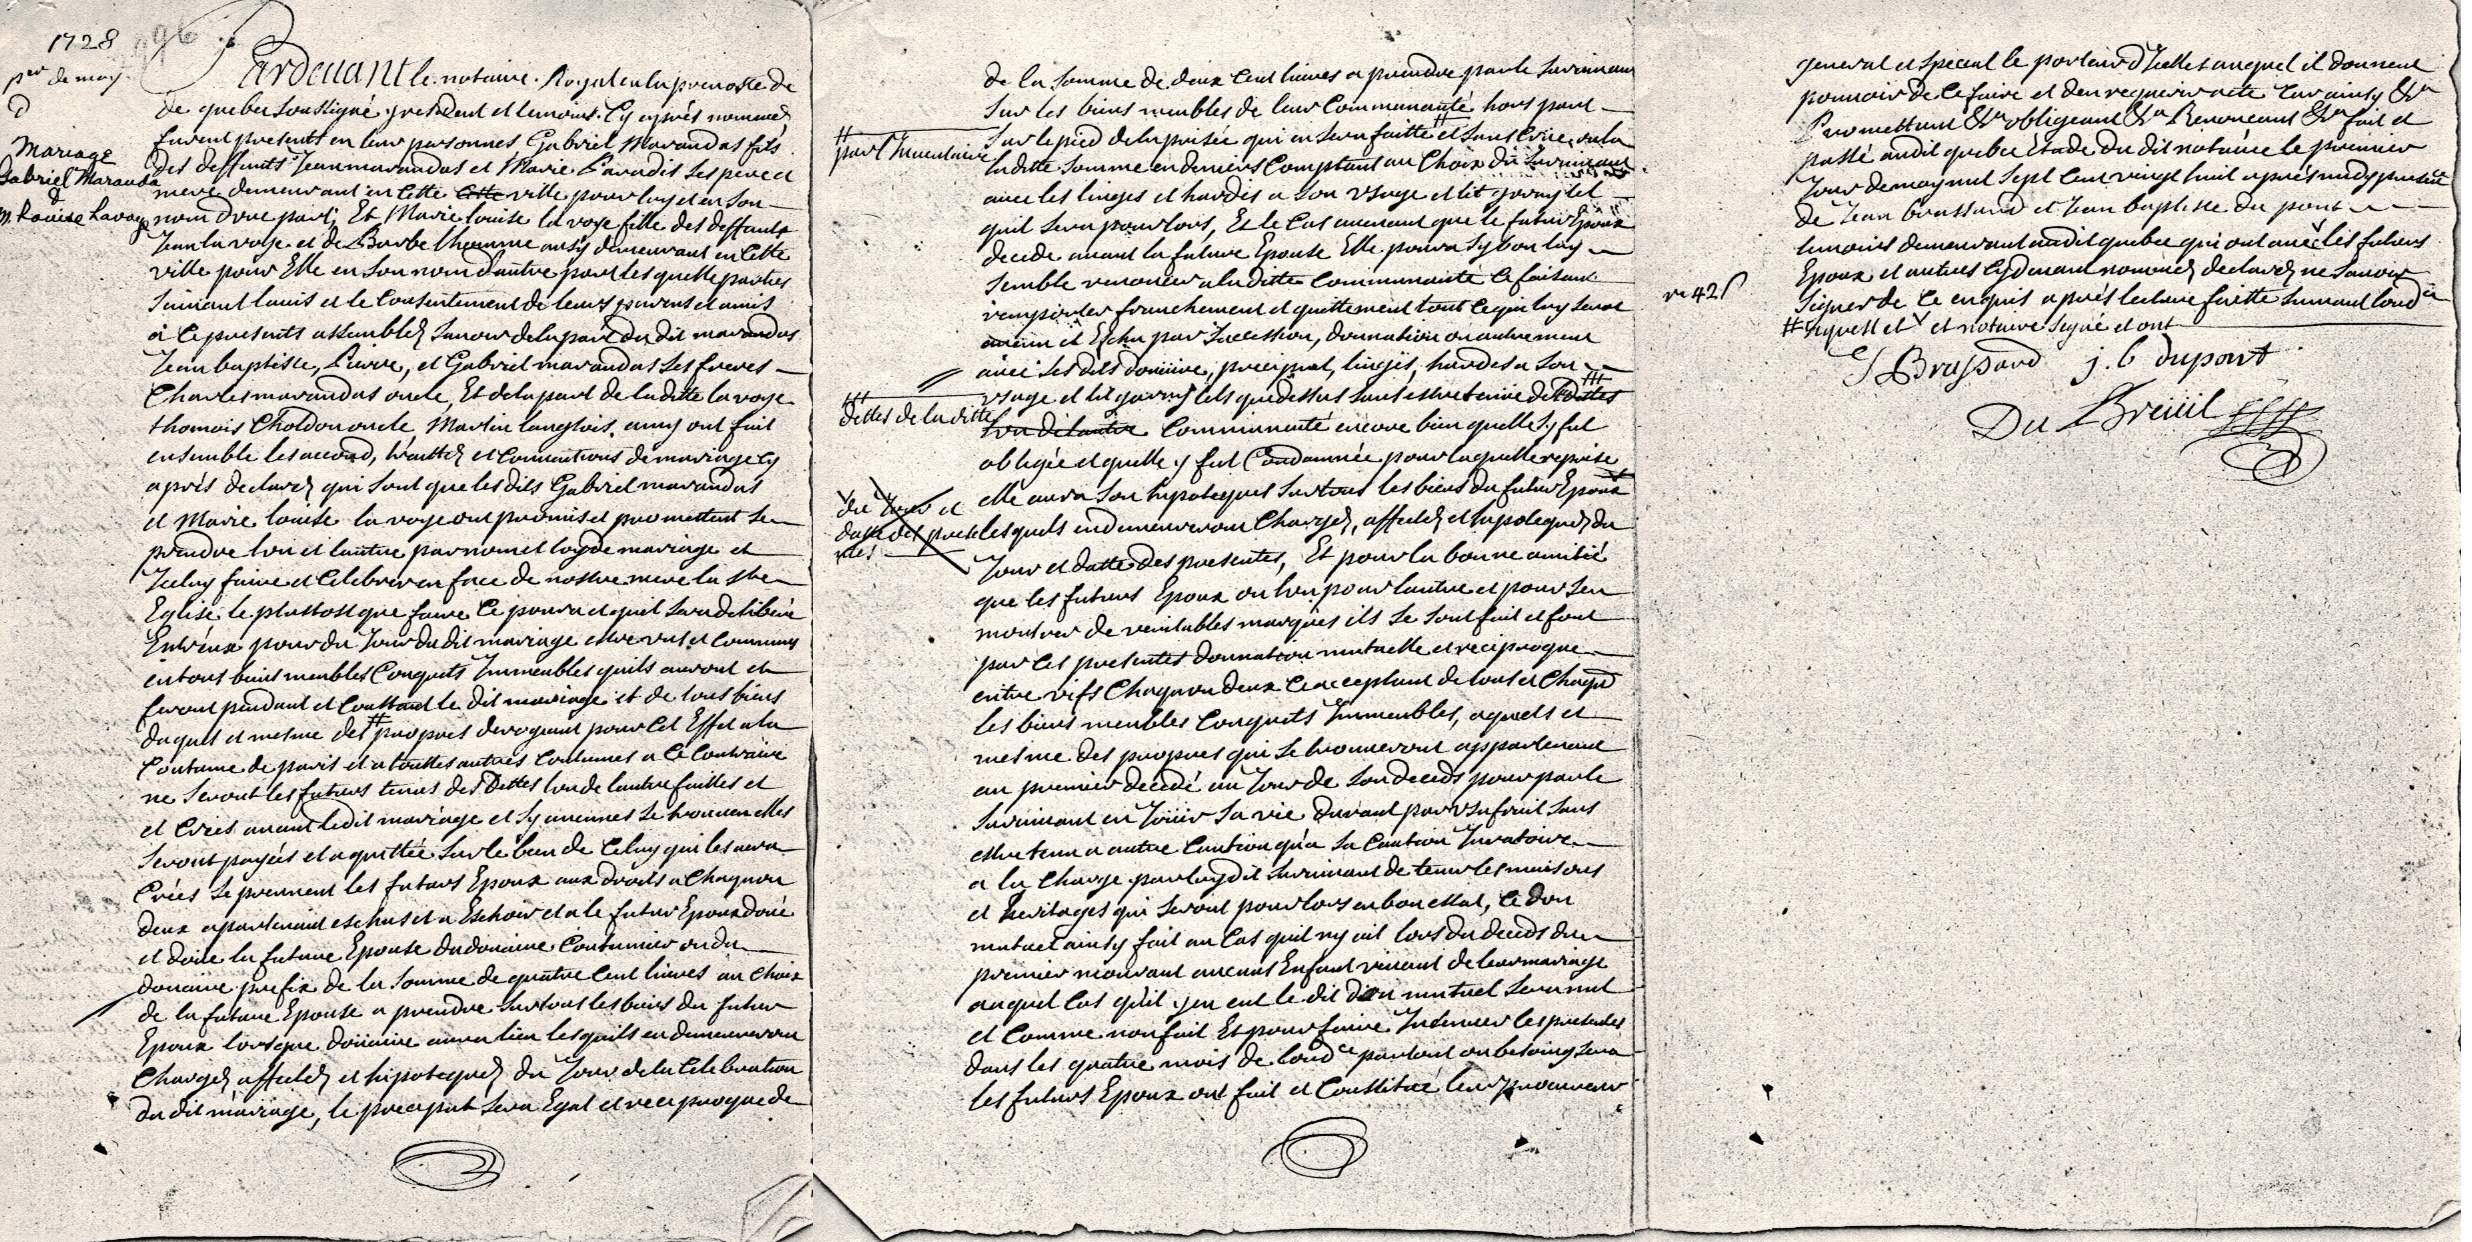 1728
96
per de may
Mariage
Gabriel Maranda
&
M. Louise Lavoye
Pardevant le notaire Royal en la prevoste de
de quebec soussigné y resident et temoins Cy aprés nommez
furent presents en leurs personnes Gabriel Marandas fils
des deffunts Jean marandas et Marie Paradis ses pere et
mere demeurant en Cette Cette ville pour luy et en son
nom dvne part, Et Marie louise la voye fille des deffunts
Jean la voye et de Barbe lhomme aussy demeurant en Cette
ville pour Elle en son nom dautre part lesquelle parties
suivant lavis et le Consentement de leurs parens et amis
à Ce presents assemblez savoir de la part du dit marandas
Jean baptiste, Pierre, et Gabriel marandas ses freres
Charles marandas oncle, Et de la part de laditte la voye
thomas Choldon oncle Martin langlois, amy ont fait
ensemble les accord, traittez et Conventions de mariage Cy
aprés declarez qui sont que les dits Gabriel marandas
et Marie louise la voye ont promis et promettent se
prendre lun et lautre par nom et loy de mariage et
Iceluy faire et Celebrer en face de nostre mere la ste
Eglise le plustost que faire Ce poura et quil sera deliberé
Entréux pour du Jour dudit mariage estre vns et Communs
en tous biens meubles Conquets Immeubles quils auront et
feront pendant et Constant le dit mariage et de tous biens
daquets et mesme des # propres derogeant pour Cet Effet a la
Coutume de paris et a touttes autres Coutumes a Ce Contraire
ne seront les futurs tenus des Dettes lun de lautre faittes et
et Créés avant ledit mariage et sy aucunes se trouven elles
seront payées et aquittée sur le bien de Celuy qui les aura
Créés se prennent les futurs Epoux aux droits a Chaqvn
deux apartenant eschus et a Eschoir et a le futur Epoux doué
et doüe la future Epouse du doüaire Coutumier ou du
doüaire prefix de la somme de quatre Cent livres au Choix
de la future Epouse a prendre sur tous les biens du futur
Epoux lorsque doüaire aura lieu lesquels en demeureront
Chargez affectez et hipotequez du Jour de la Celebration
du dit mariage, le preciput sera Egal et reciproque de
de la somme de deux Cent livres a prendre par le survivant
sur les biens meubles de leur Communauté hors part
sur le pied de la prisée qui en sera faitte # et sans Criée, ou la
# par l'Inventaire
laditte somme en deniers Comptant au Choix du survivant
avec les linges et hardes a son vsage et lit garny tel
quil sera pour lors, Et le Cas avenant que le futur Epoux
decede avant la future Epouse Elle poura sy bon luy
semble renoncer a laditte Communauté Ce faisant
remporter franchement et quittement tout Ce qui luy sera
avenu et Eschu par succession, donnation ou autrement
avec ses dits doüaire, preciput, linges, hardes a son
vsage et lit garny tels que dessus sans estre tenüe des dettes
dettes de la ditte
lun de lautre Communauté encore bien quelle sy fut
obligée et quelle y fut Condamnée pour laquelle reprise
elle aura son hipoteques sur tous les biens du futur Epoux
du Jour et
datte des presentes
lesquels en demeureront Chargez, affectez et hipotequez du
Jour et datte des presentes, Et pour la bonne amitié
que les futurs Epoux ont lun pour lautre et pour sen
montrer de veritables marques ils se sont fait et font
par Ces presentes donnation mutuelle et reciproque
entre vifs Chaqun deux Ce acceptant de tous et Chaqun
les biens meubles Conquets Immeubles, aquets et
mesme des propres qui se trouveront appartenant
au premier decedé au Jour de son deceds pour par le
survivant en Joüir sa vie durant par vsufruit sans
estre tenu a autre Caution qu'a sa Caution Juratoire
a la Charge par ledit survivant de tenir les maisons
et heritages qui seront pour lors en bon estat, Ce don
mutuel ainsy fait au Cas quil ny ait lors du deceds du
premier mourant aucuns Enfant vivant de leur mariage
auquel Cas quil y en eut le dit don mutuel sera nul
et Comme non fait Et pour faire Insinuer les presentes
dans les quatre mois de lordce partout ou besoing sera
les futurs Epoux ont fait et Constitué leur procureur
general et special le porteur dIcelles auquel il donnent
pouvoir de Ce faire et den requerir acte Car ainsy &ca
Promettant &ca obligeant &ca Renonceant &ca fait et
passé audit quebec Etude du dit notaire le premier
Jour de may mil sept Cent vingt huit aprés midy presence
de Jean Brassard et Jean baptiste du pont
temoins demeurant audit quebec qui ont avec les futurs
Epoux et autres Cydevant nommez declarez ne savoir
signer de Ce enquis aprés lecture faitte suivant lordce
# et notaire signé et ont
J Brassard j. b dupont
Du Breüil